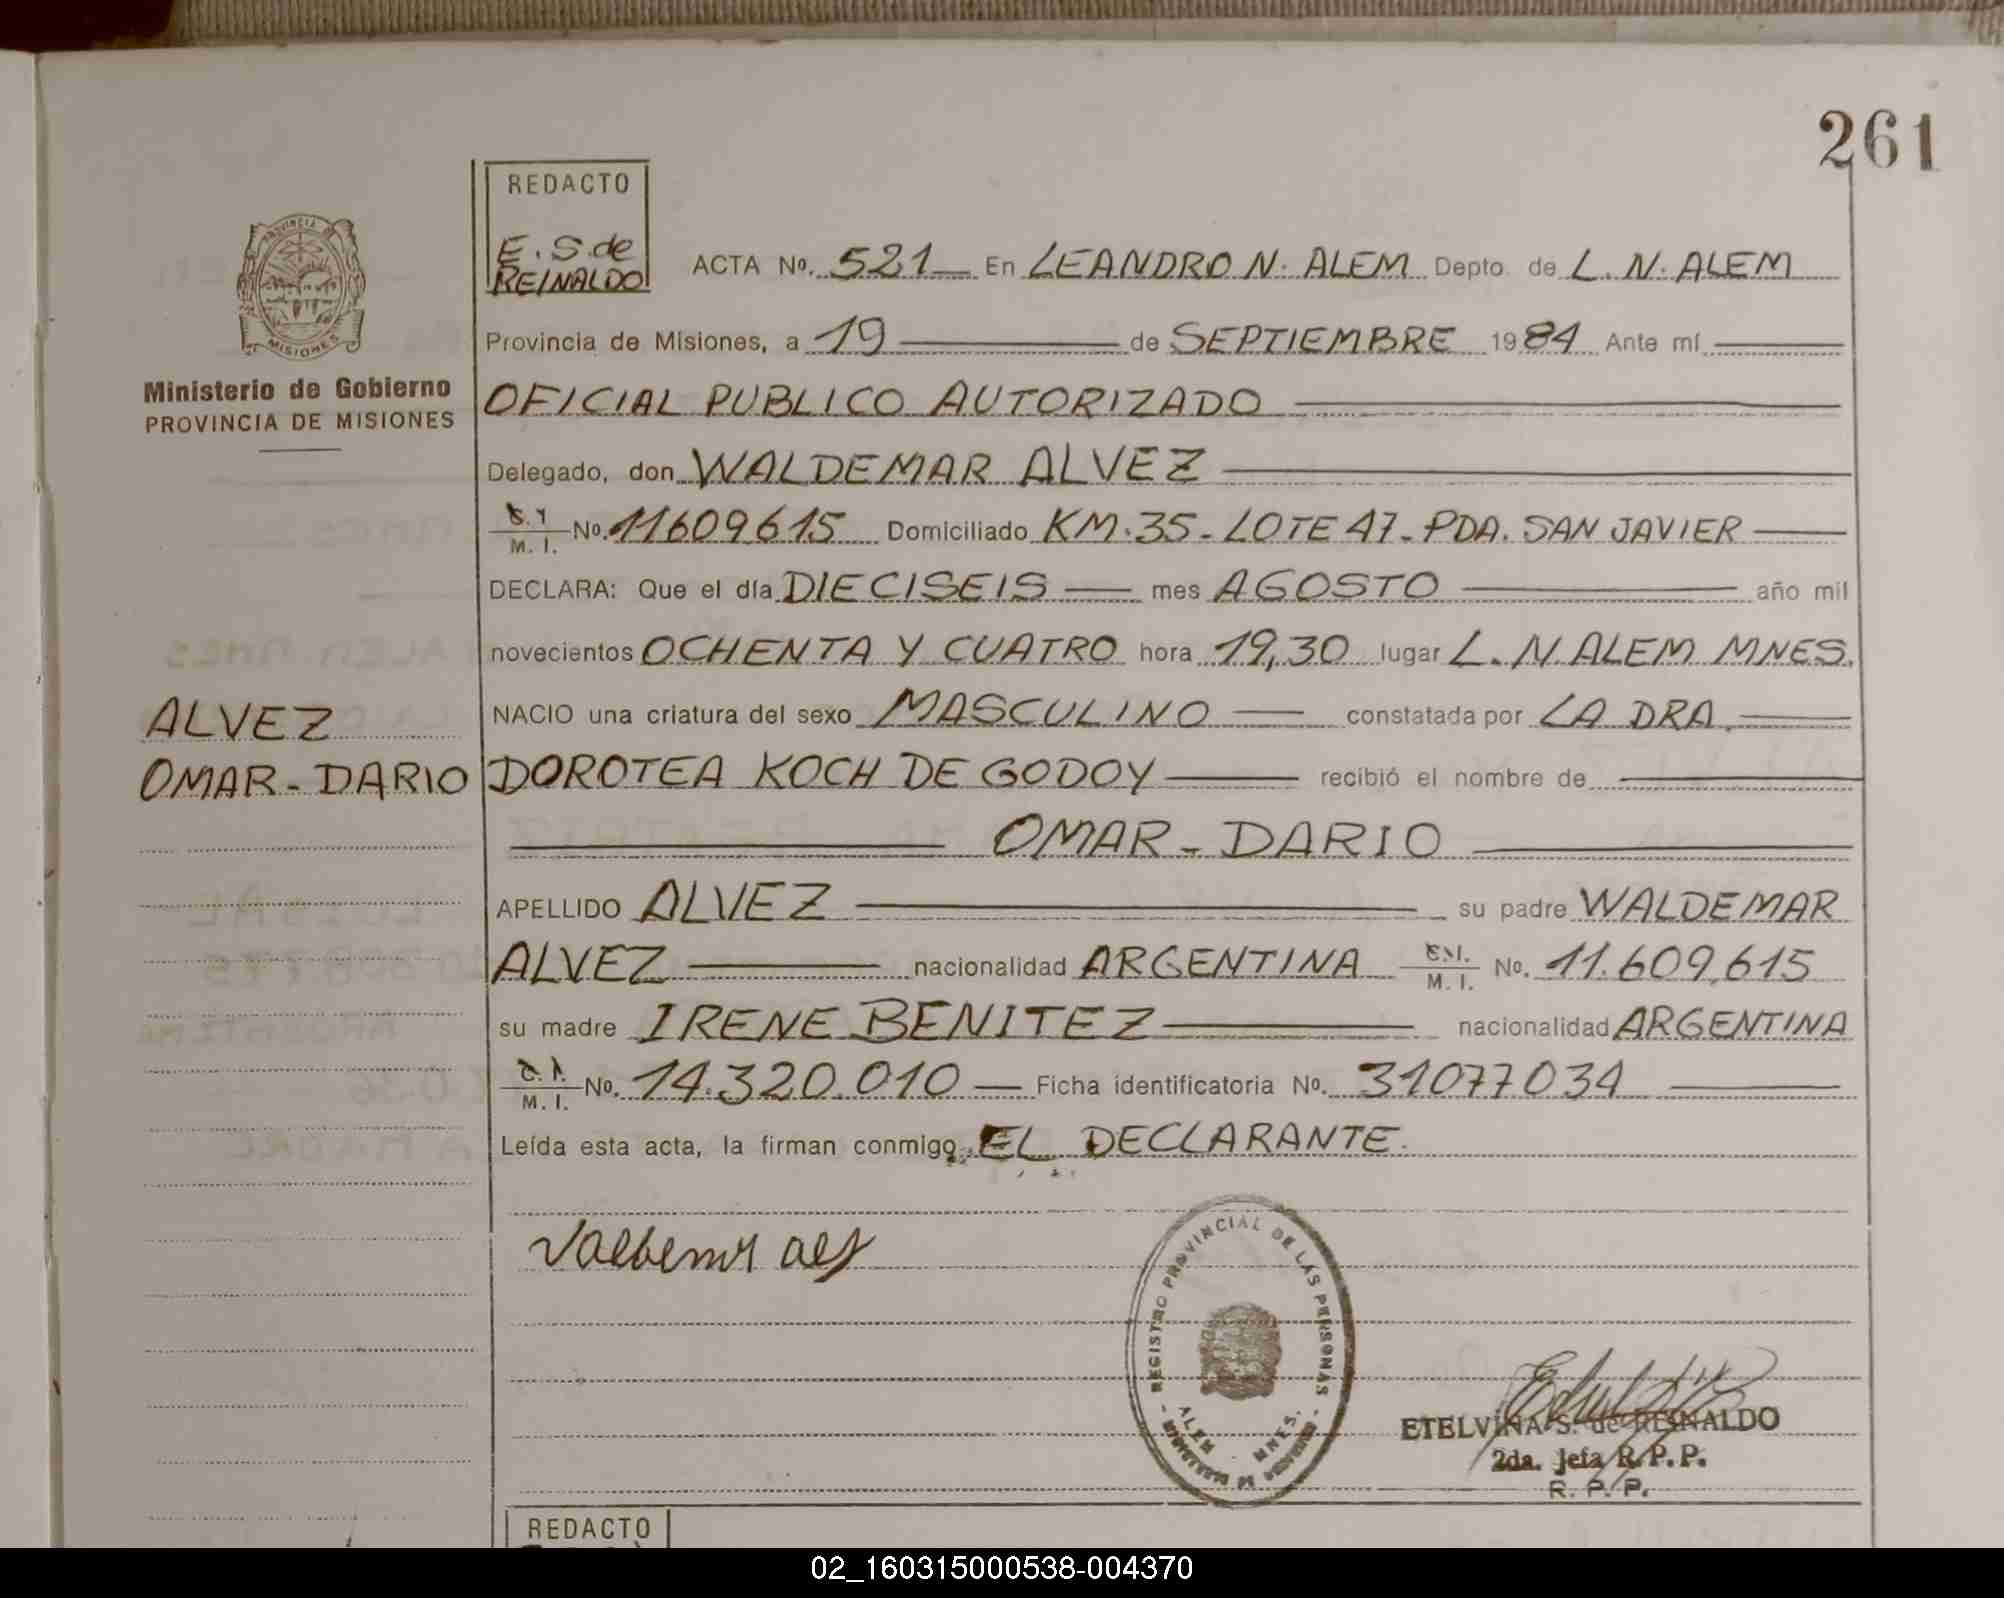 261
REDACTO
E. S. de
REINALDO
ACTA No. 521 En LEANDRO N. ALEM Depto. de L. N. ALEM
PROVINCIA DE
MISIONES
Ministerio de Gobierno
PROVINCIA DE MISIONES
Provincia de Misiones, a 19 de SEPTIEMBRE 1984 Ante mí
OFICIAL PUBLICO AUTORIZADO
Delegado, don WALDEMAR ALVEZ
C. I. M. I. No. 11609615 Domiciliado KM. 35 - LOTE 47 - PDA. SAN JAVIER
DECLARA: Que el día DIECISEIS mes AGOSTO año mil
novecientos OCHENTA Y CUATRO hora 19,30 lugar L. N. ALEM MNES.
ALVEZ
OMAR - DARIO
NACIO una criatura del sexo MASCULINO constatada por LA DRA.
DOROTEA KOCH DE GODOY recibió el nombre de
OMAR - DARIO
APELLIDO ALVEZ su padre WALDEMAR
ALVEZ nacionalidad ARGENTINA C. I. M. I. No. 11.609.615
su madre IRENE BENITEZ nacionalidad ARGENTINA
C. I. M. I. No. 14.320.010 Ficha identificatoria No. 31077034
Leída esta acta, la firman conmigo, EL DECLARANTE.
REGISTRO PROVINCIAL DE LAS PERSONAS
ALEM - MNES.
ETELVINA S. de REINALDO
2da. Jefa R. P. P.
R. P. P.
REDACTO
02_160315000538-004370